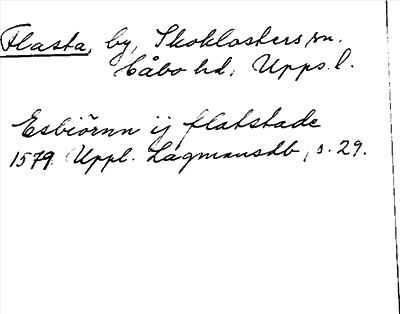 Flasta, by, Skoklosters sn.
Håbo hd, Upps. l.
Esbiörnn ij flatstade
1579 Uppl. Lagmansdb, s. 29.